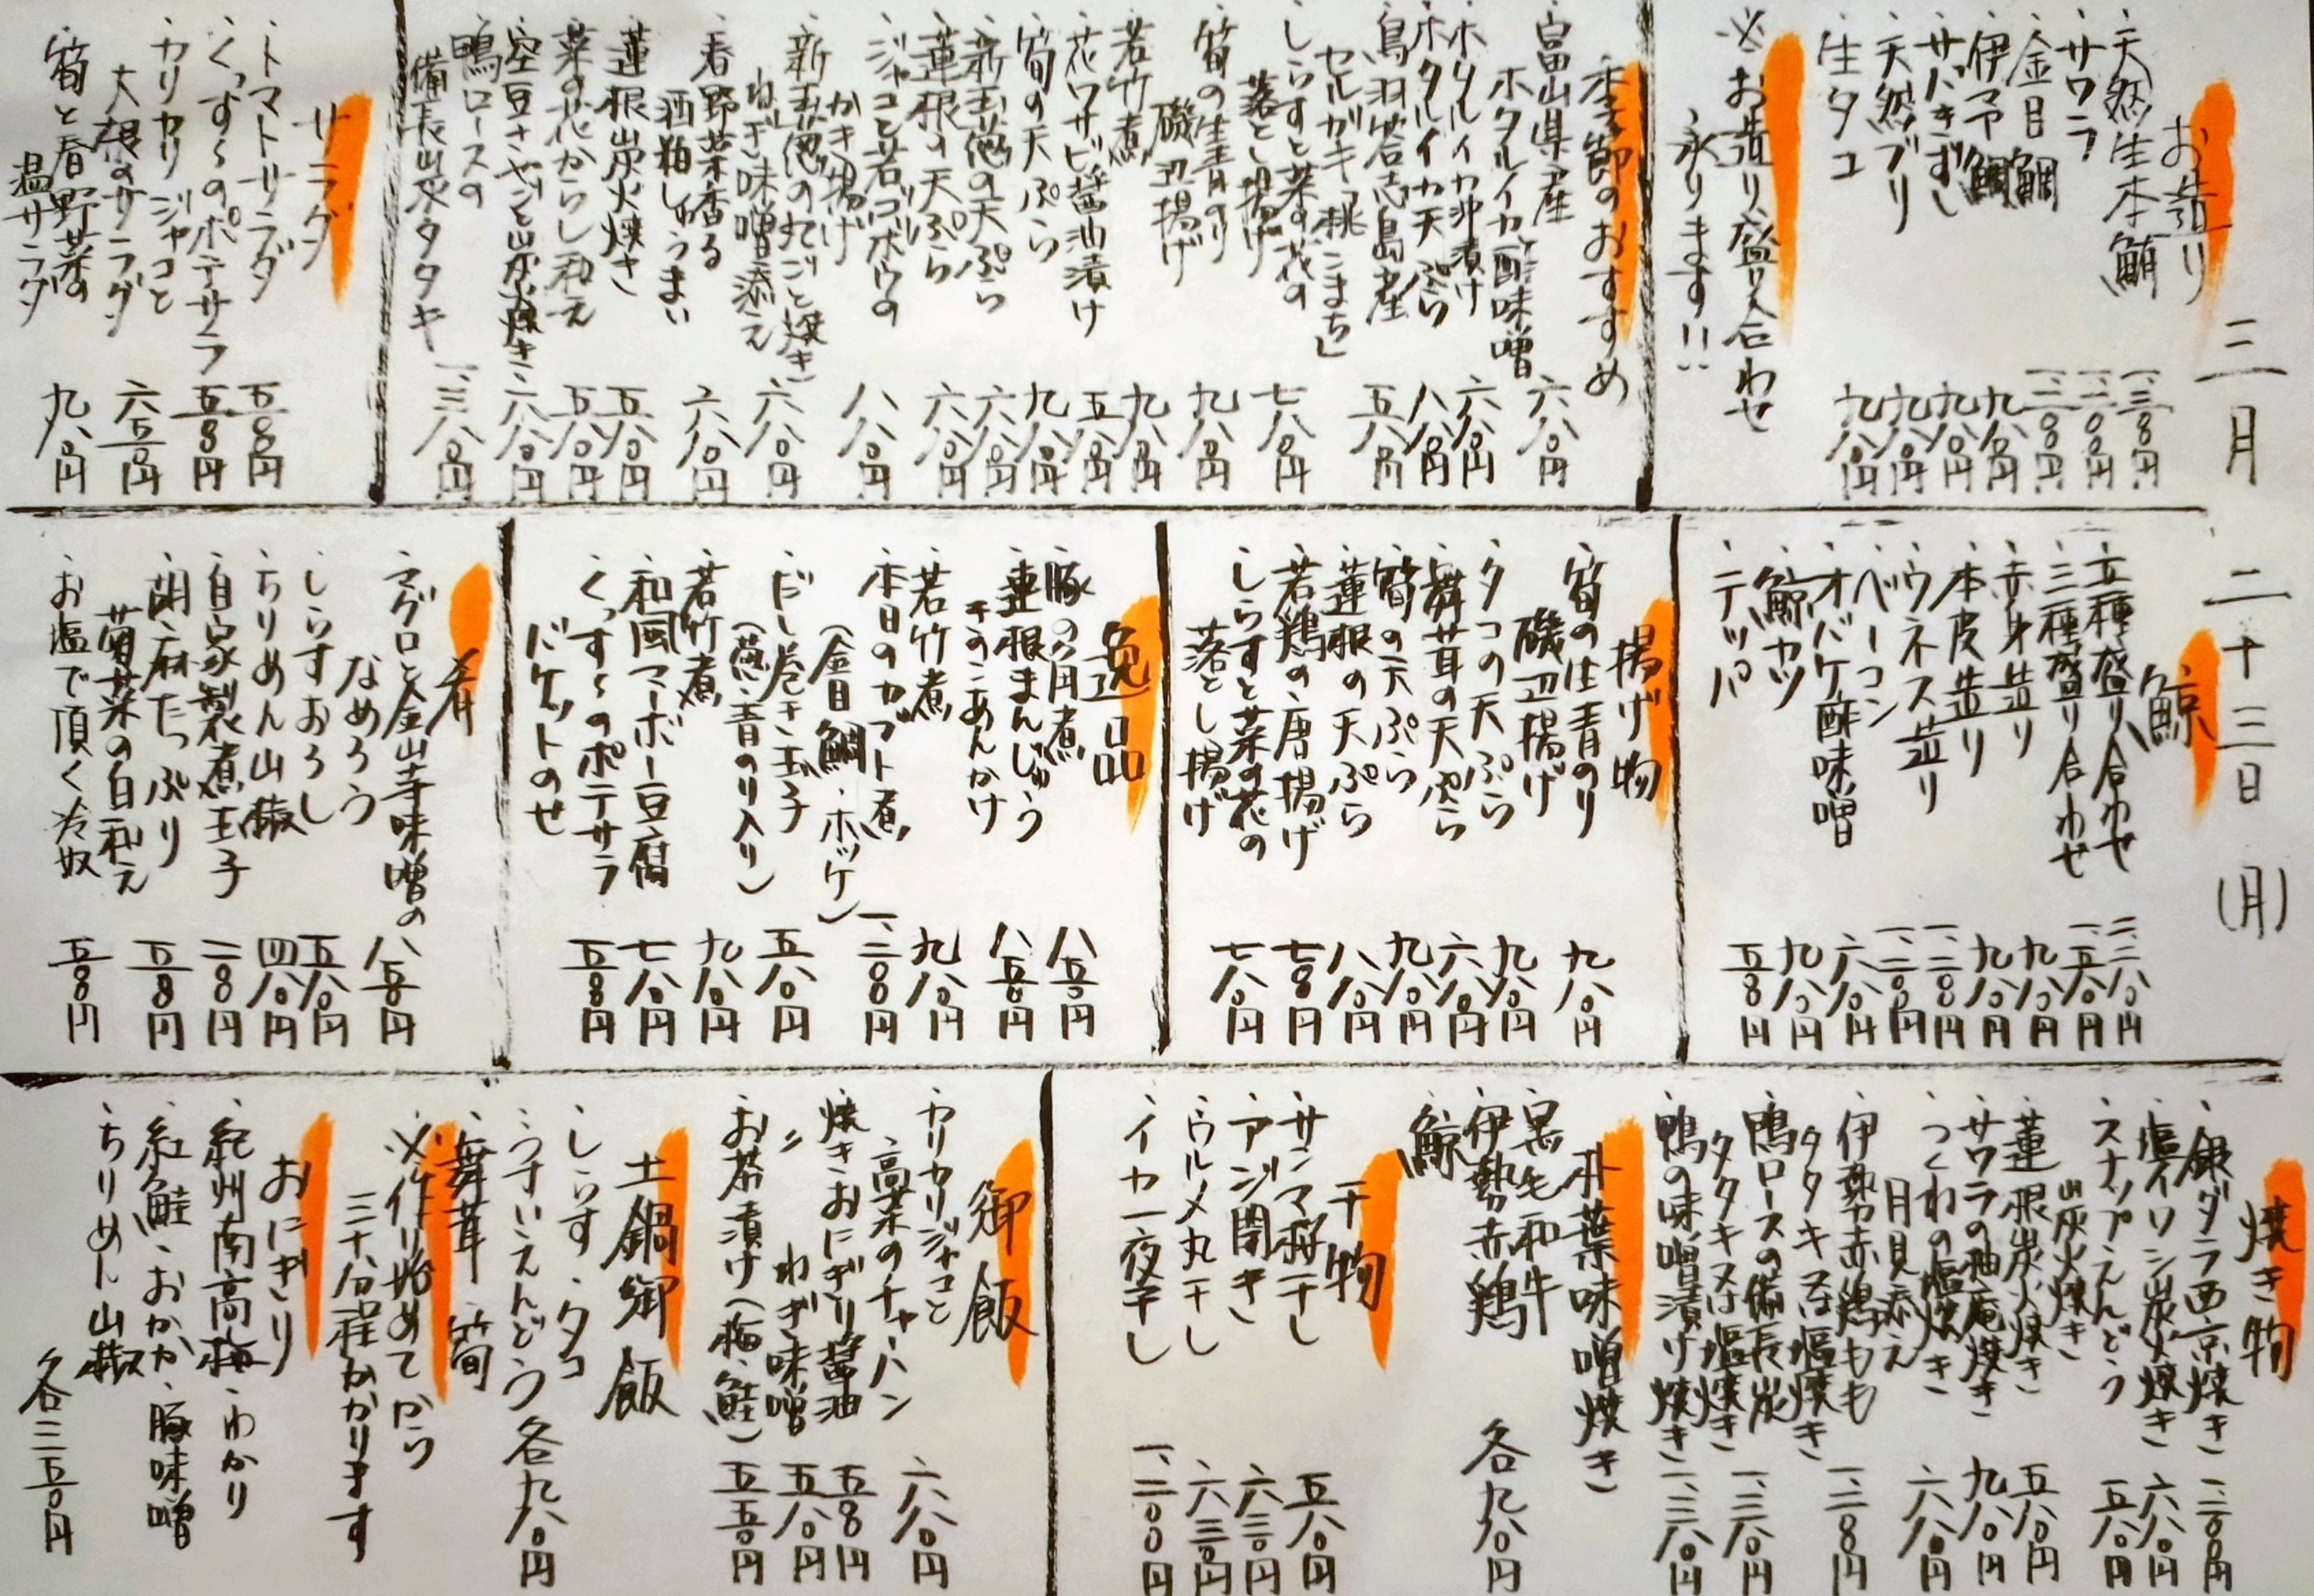 三月 二十三日 (月)
お造り
・天然生本鮪 一、三八〇円
・サワラ 一、二〇〇円
・金目鯛 一、三〇〇円
・伊予鯛 九八〇円
・サバきずし 九八〇円
・天然ブリ 九八〇円
・生タコ 九八〇円
※お造り盛り合わせ
承ります!!
季節のおすすめ
・富山県産
ホタルイカ酢味噌 六八〇円
・ホタルイカ沖漬け 六八〇円
・ホタルイカ天ぷら 八八〇円
・鳥羽答志島産
セルガキ「桃こまち」 五八〇円
・しらすと菜の花の
落とし揚げ 七八〇円
・筍の生青のり
磯辺揚げ 九八〇円
・若竹煮 九八〇円
・花ワサビ醤油漬け 五八〇円
・筍の天ぷら 九八〇円
・新玉葱の天ぷら 六八〇円
・蓮根の天ぷら 六八〇円
・ジャコと若ゴボウの
かき揚げ 八八〇円
・新玉葱の丸ごと焼き
ねぎ味噌添え 六八〇円
・春野菜香る
酒粕しゅうまい 六八〇円
・蓮根炭火焼き 五八〇円
・菜の花からし和え 五八〇円
・空豆さやごと炭火焼き 六八〇円
・鴨ロースの
備長炭タタキ 一、三八〇円
サラダ
・トマトサラダ 五〇〇円
・くっすぅのポテサラ 五八〇円
・カリカリジャコと
大根のサラダ 六五〇円
・筍と春野菜の
温サラダ 九八〇円
鯨
・五種盛り合わせ 二、三八〇円
・三種盛り合わせ 一、五八〇円
・赤身造り 九八〇円
・本皮造り 九八〇円
・ウネス造り 一、二八〇円
・ベーコン 一、二八〇円
・オバケ酢味噌 六八〇円
・鯨カツ 九八〇円
・テッパ 五八〇円
揚げ物
・筍の生青のり
磯辺揚げ 九八〇円
・タコの天ぷら 九八〇円
・舞茸の天ぷら 六八〇円
・筍の天ぷら 九八〇円
・蓮根の天ぷら 八八〇円
・若鶏の唐揚げ 七八〇円
・しらすと菜の花の
落とし揚げ 七八〇円
逸品
・豚の角煮 八五〇円
・蓮根まんじゅう
きのこあんかけ 八五〇円
・若竹煮 九八〇円
・本日のカブト煮
(金目鯛・ホッケ) 一、二〇〇円
・だし巻き玉子
(葱・青のり入り) 五八〇円
・若竹煮 九八〇円
・和風マーボー豆腐 七八〇円
・くっすぅのポテサラ
バケットのせ 五八〇円
肴
・マグロと金山寺味噌の
なめろう 八五〇円
・しらすおろし 五八〇円
・ちりめん山椒 四八〇円
・自家製煮玉子 二八〇円
・胡麻たっぷり
菊菜の白和え 五八〇円
・お塩で頂く冷奴 五八〇円
焼き物
・銀ダラ西京焼き 一、二八〇円
・塩イワシ炭火焼き 六八〇円
・スナップえんどう
炭火焼き 五八〇円
・蓮根炭火焼き 五八〇円
・サワラの柚庵焼き 九八〇円
・つくねの塩焼き
月見添え 六八〇円
・伊勢赤鶏もも
タタキ又は塩焼き 一、二八〇円
・鴨ロースの備長炭
タタキ又は塩焼き 一、三八〇円
・鴨の味噌漬け焼き 一、三八〇円
朴葉味噌焼き
・黒毛和牛
・伊勢赤鶏
・鯨
各九八〇円
干物
・サンマ桜干し 五八〇円
・アジ開き 六三〇円
・ウルメ丸干し 六三〇円
・イカ一夜干し 一、二〇〇円
御飯
・カリカリジャコと
高菜のチャーハン 六八〇円
・焼きおにぎり醤油 五八〇円
・〃 ねぎ味噌 五八〇円
・お茶漬け(梅・鮭) 五五〇円
土鍋御飯
・しらす・タコ
・うすいえんどう 各九八〇円
・舞茸・筍
※作り始めてから
三十分程かかります
おにぎり
・紀州南高梅・わかり
・紅鮭・おかか・豚味噌
・ちりめん山椒
各三五〇円